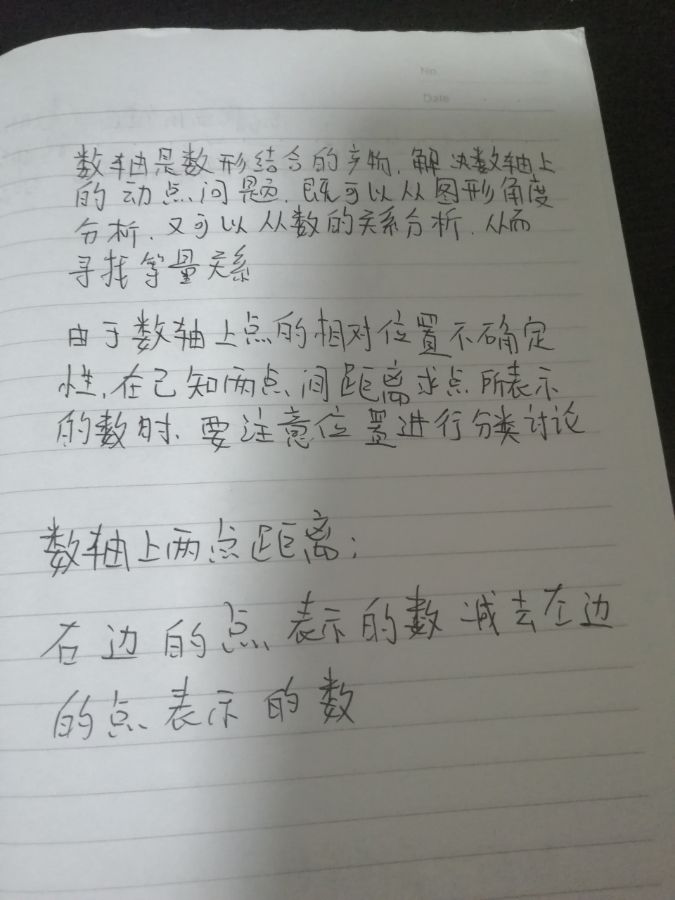 No
Date
数轴是数形结合的产物,解决数轴上
的动点问题,既可以从图形角度
分析,又可以从数的关系分析,从而
寻找等量关系
由于数轴上点的相对位置不确定
性,在已知两点间距离求点所表示
的数时,要注意位置进行分类讨论
数轴上两点距离:
右边的点表示的数减去左边
的点表示的数